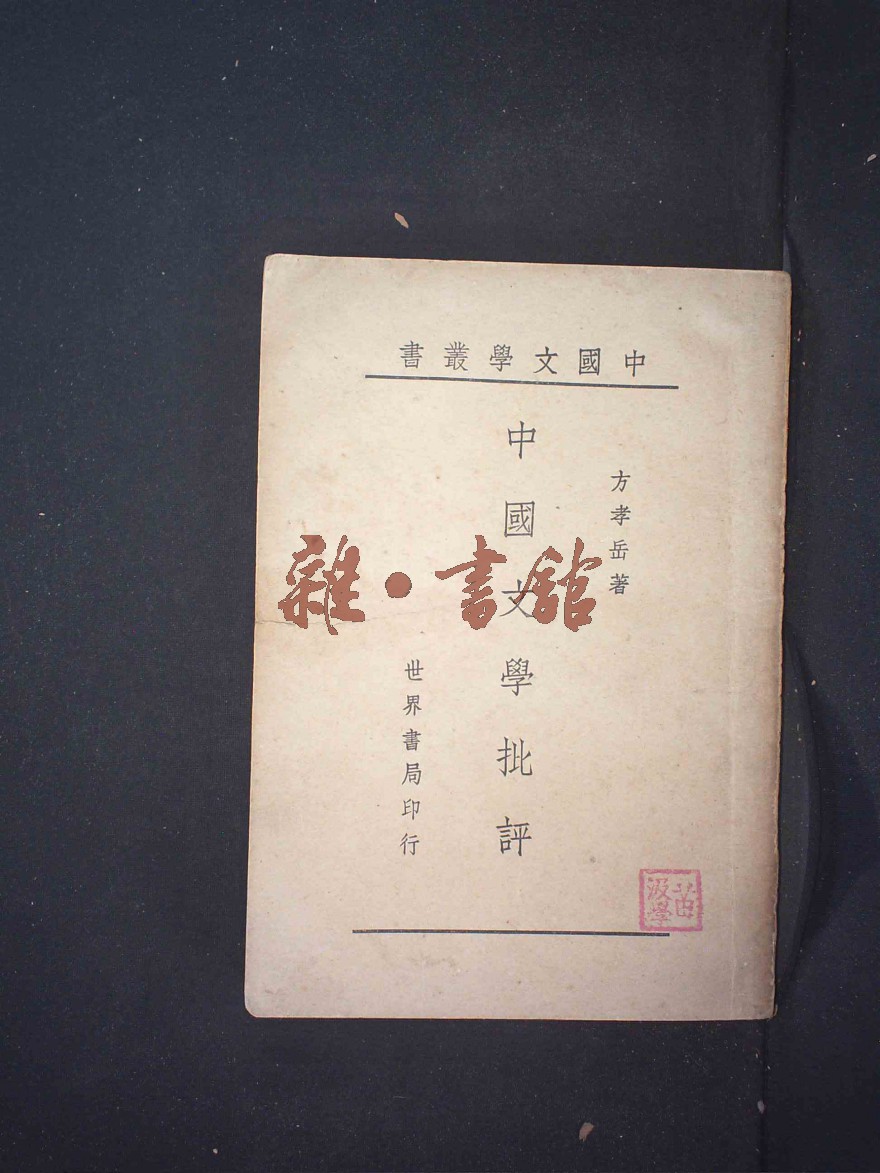 中國文學叢書
方孝岳著
中國文學批評
世界書局印行
雜·書館